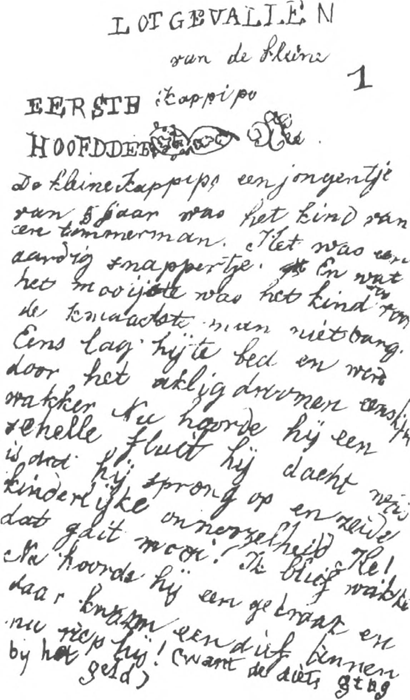 LOTGEVALLEN
van de kleine
1
EERSTE Kappipo
HOOFDDEEL
De kleine Kappipo een jongentje
van 5 jaar was het kind van
een timmerman. Het was een
aardig snappertje. En wat
het mooijste was het kind was voor
de kwaadste man niet bang.
Eens lag hij te bed en werd
door het aklig droomen eensklaps
wakker Nu hoorde hij een
schelle fluit hij dacht
hij sprong op en zeide
kinderlijke onnozelheid He!
dat gait mooi! Ik blief wakker
Nu hoorde hij een gekraak en
daar kwam een dief binnen
nu riep hij! (want de diets ging
bij het geld)